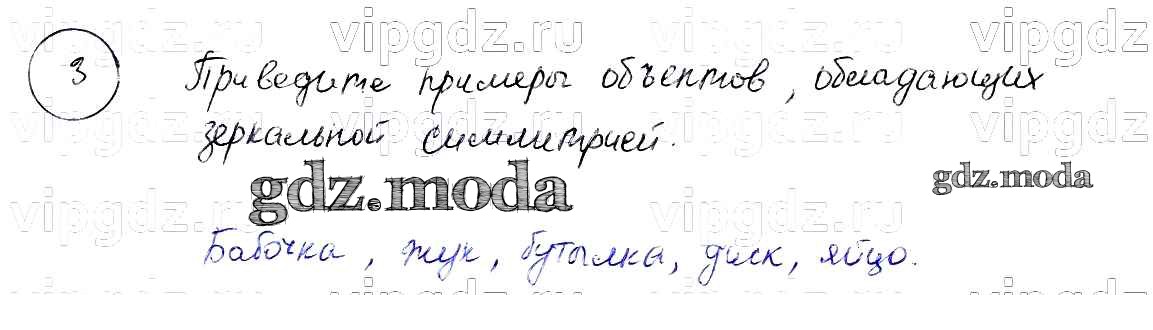 vipgdz.ru vipgdz.ru vipgdz.ru vipgdz
3 Приведите примеры объектов, обладающих
vipgdz.ru vipgdz.ru vipgdz.ru vipgdz
зеркальной симметрией.
gdz.moda gdz.moda
vipgdz.ru vipgdz.ru vipgdz.ru vipgdz
Бабочка, жук, бутылка, диск, яйцо.
vipgdz.ru vipgdz.ru vipgdz.ru vipgdz